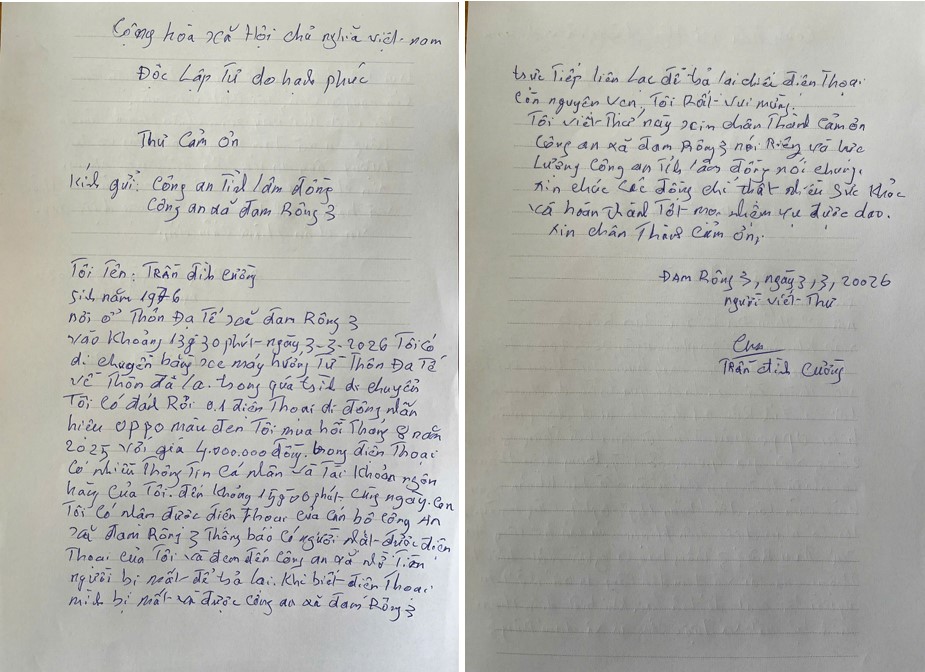 Cộng hòa xã Hội chủ nghĩa việt nam
Độc Lập Tự do hanh phúc
Thư Cảm ơn
Kính gửi: Công an Tỉnh lâm đồng
Công an xã đam Rông 3
Tôi Tên: TRần đình Cường
Sinh năm 1976
nơi ở Thôn Đạ Tế xã đam Rông 3
vào Khoảng 13g30 phút ngày, 3-3-2026 Tôi có
di chuyển bằng xe máy hướng Từ Thôn Đa Tế
về Thôn đa la. trong quá trình di chuyển
Tôi có đánh Rơi 01 điện Thoại di động nhãn
hiệu OPPO màu đen Tôi mua hồi Tháng 8 năm
2025 với giá 4.000.000 đồng. trong điện Thoại
có nhiều Thông Tin cá nhân và Tài Khoản ngân
hàng của Tôi. đến khoảng 15g00 phút cùng ngày. con
Tôi có nhận được điện thoại của cán bộ công An
xã đam Rông 3 Thông báo có người nhặt được điện
Thoại của Tôi và đem đến công an xã nhờ Tìm
người bị mất để trả lại. khi biết điện Thoại
mình bị mất và được công an xã đam Rông 3
trực Tiếp liên Lạc để trả lại chiếc điện Thoại
còn nguyên vẹn, Tôi Rất vui mừng.
Tôi viết Thư này xin chân Thành cảm ơn
Công an xã đam Rông 3 nói Riêng và lực
Lượng Công an Tỉnh lâm đồng nói chung.
xin chúc các đồng chí thật nhiều sức khỏe
và hoàn thành Tốt mọi nhiệm vụ được dao.
xin chân Thành cảm ơn,
ĐAM Rông 3, ngày 3, 3, 20026
người viết Thư
TRần đình Cường